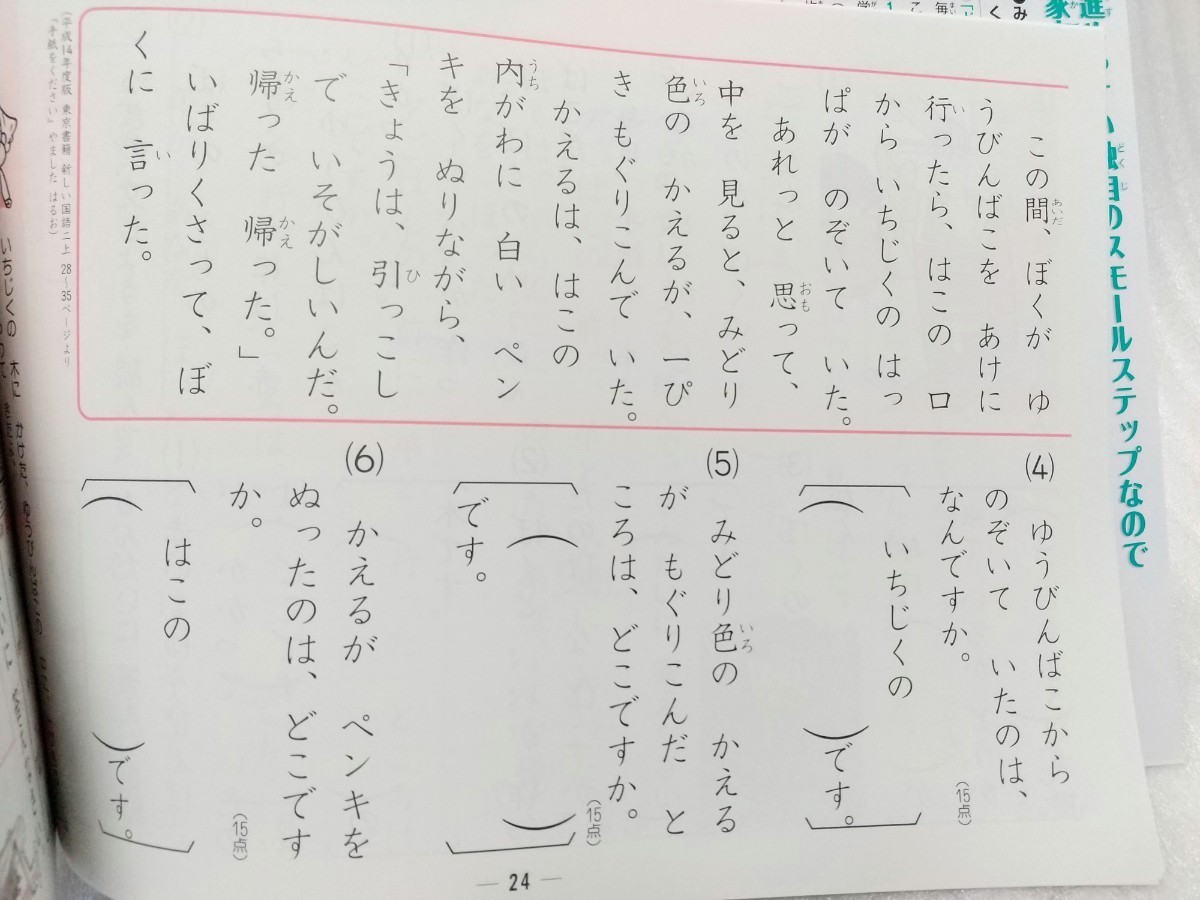 この間、ぼくが ゆ
うびんばこを あけに
行ったら、はこの 口
から いちじくの はっ
ぱが のぞいて いた。
あれっと 思って、
中を 見ると、みどり
色の かえるが、一ぴ
き もぐりこんで いた。
かえるは、はこの
内がわに 白い ペン
キを ぬりながら、
「きょうは、引っこし
で いそがしいんだ。
帰った 帰った。」
いばりくさって、ぼ
くに 言った。
(平成14年度版 東京書籍 新しい国語二上 28〜35ページより
『手紙をください』やました はるお)
(4) ゆうびんばこから
のぞいて いたのは、
なんですか。
(15点)
いちじくの
( )です。
(5) みどり色の かえる
が もぐりこんだ と
ころは、どこですか。
(15点)
( )
です。
(6) かえるが ペンキを
ぬったのは、どこです
か。
(15点)
はこの
( )です。
— 24 —
独自のスモールステップなので
いちじくの 木に かけた、ゆうびんばこの